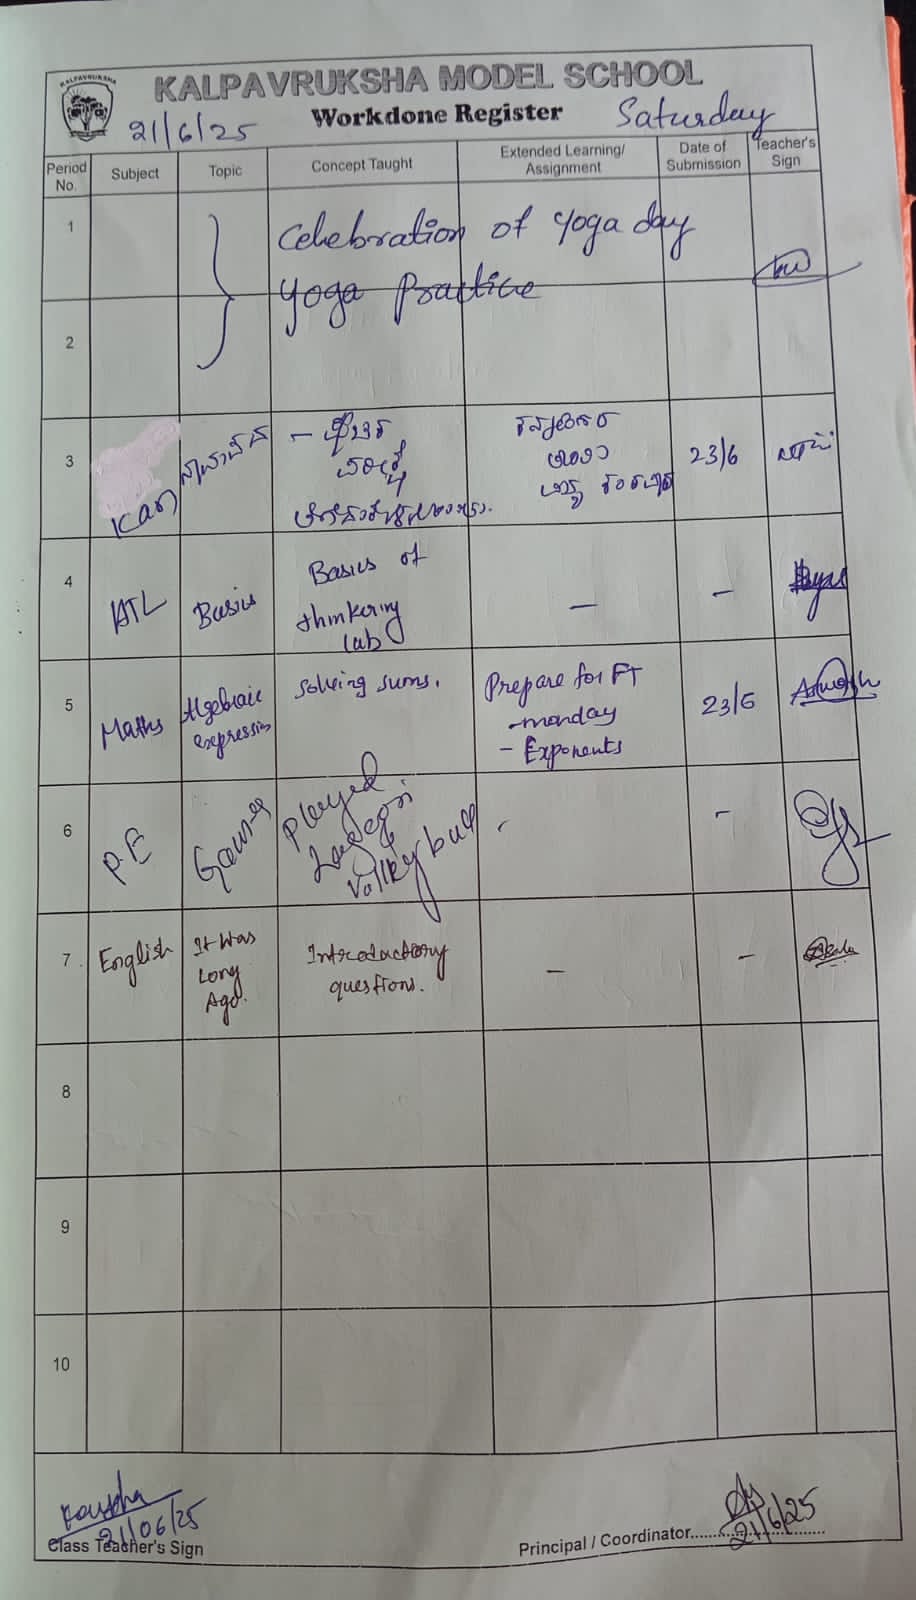 KALPAVRUKSHA
KALPAVRUKSHA MODEL SCHOOL
Workdone Register
21/6/25
Saturday
Period No. Subject Topic Concept Taught Extended Learning/ Assignment Date of Submission Teacher's Sign
1 Celebration of Yoga day
Yoga Practice
2
3 Kan 23/6
4 ATL Basics Basics of
thinkering
lab — —
5 Maths Algebraic
expression Solving sums. Prepare for FT
- monday
- Exponents 23/6
6 P.E Games Played
Volleyball -
7 English It Was
Long
Ago. Introductory
questions. — —
8
9
10
21/06/25
Class Teacher's Sign
21/6/25
Principal / Coordinator